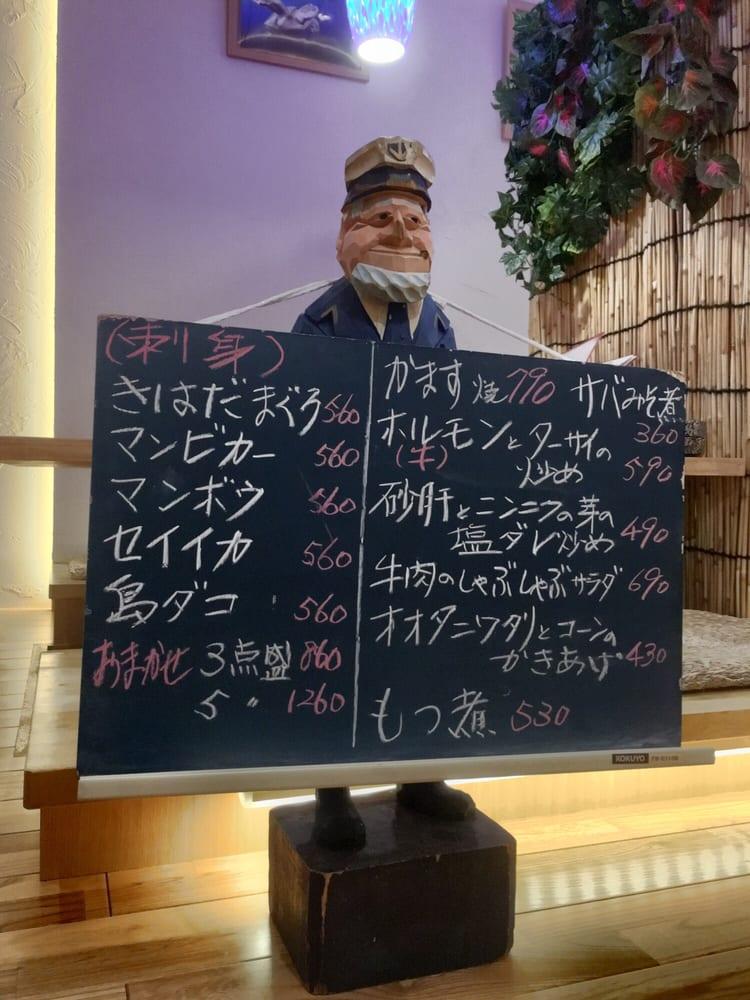 (刺身)
きはだまぐろ 560
マンビカー 560
マンボウ 560
セイイカ 560
島ダコ 560
おまかせ 3点盛 860
5 〃 1260
かます焼 790
サバみそ煮 360
ホルモンとターサイの
(牛) 炒め 590
砂肝とニンニクの芽の
塩ダレ炒め 490
牛肉のしゃぶしゃぶサラダ 690
オオタニワタリとコーンの
かきあげ 430
もつ煮 530
KOKUYO